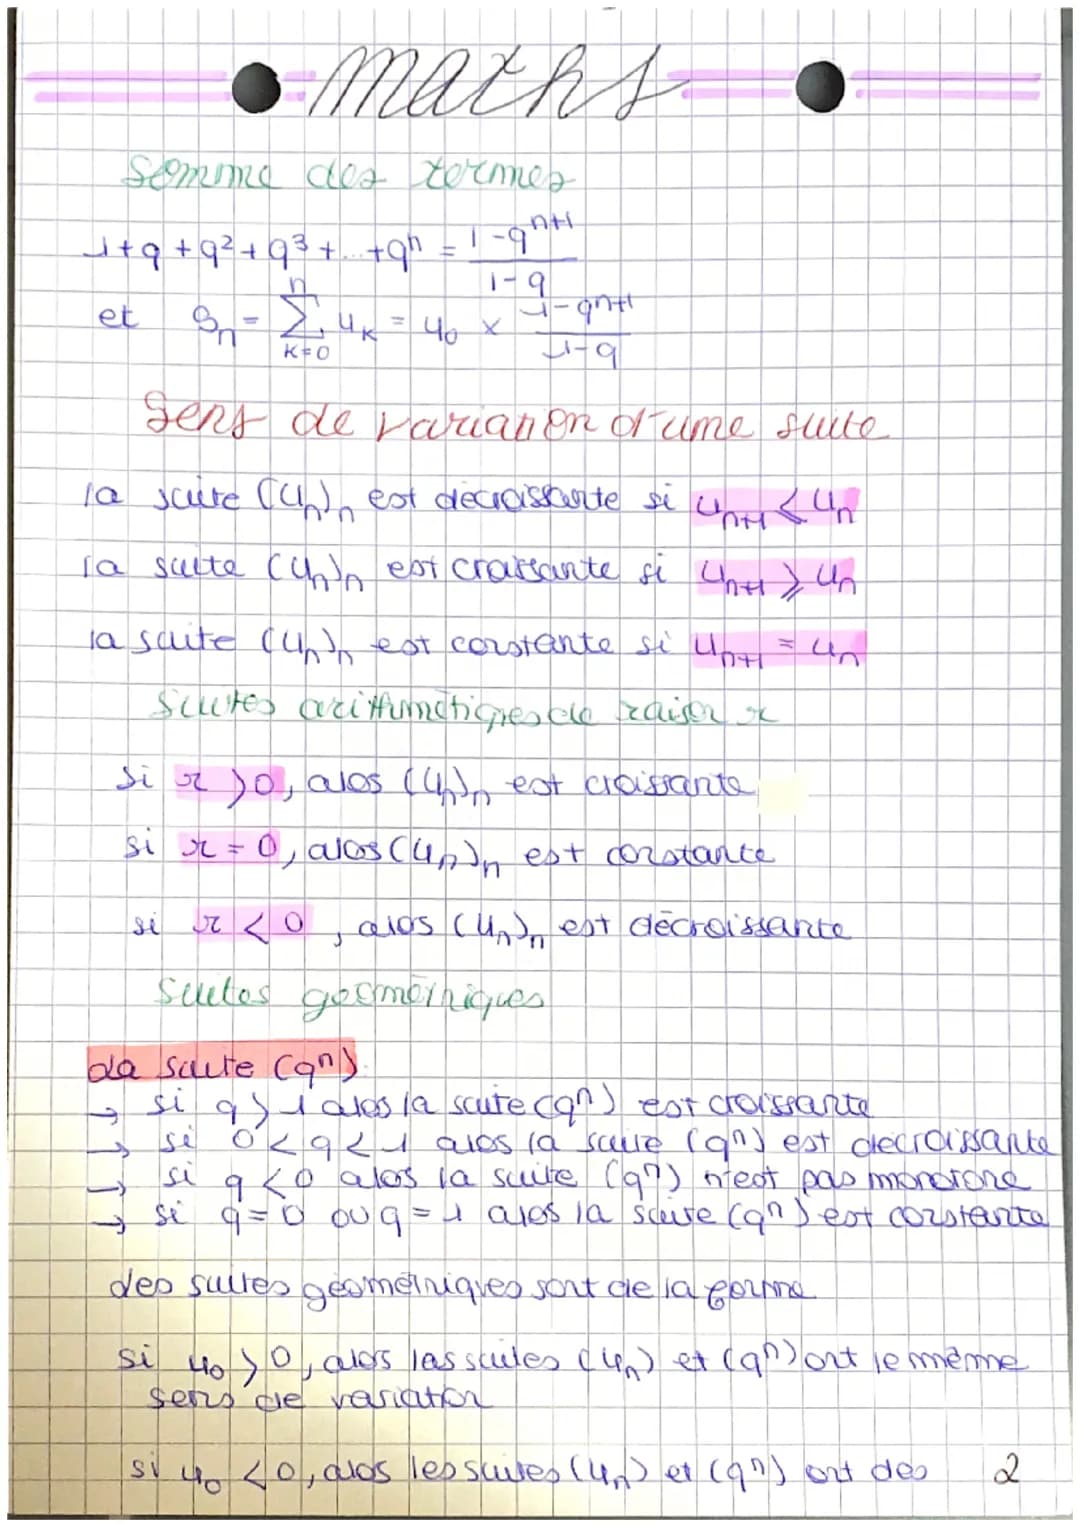 maths
Somme des termes
1+q+q²+q³+...+qⁿ = (1-qⁿ⁺¹)/(1-q)
et Sₙ = ∑ₖ₌₀ⁿ uₖ = u₀ × (1-qⁿ⁺¹)/(1-q)
Sens de variation d'une suite
la suite (uₙ)ₙ est décroissante si uₙ₊₁ < uₙ
la suite (uₙ)ₙ est croissante si uₙ₊₁ ⩾ uₙ
la suite (uₙ)ₙ est constante si uₙ₊₁ = uₙ
Suites arithmétiques de raison r
si r > 0, alors (uₙ)ₙ est croissante
si r = 0, alors (uₙ)ₙ est constante
si r < 0, alors (uₙ)ₙ est décroissante
Suites géométriques
La suite (qⁿ)
→ si q > 1 alors la suite (qⁿ) est croissante
→ si 0 < q < 1 alors la suite (qⁿ) est décroissante
→ si q < 0 alors la suite (qⁿ) n'est pas monotone
→ si q = 0 ou q = 1 alors la suite (qⁿ) est constante
des suites géométriques sont de la forme
si u₀ > 0, alors les suites (uₙ) et (qⁿ) ont le même
sens de variation
si u₀ < 0, alors les suites (uₙ) et (qⁿ) ont des
2